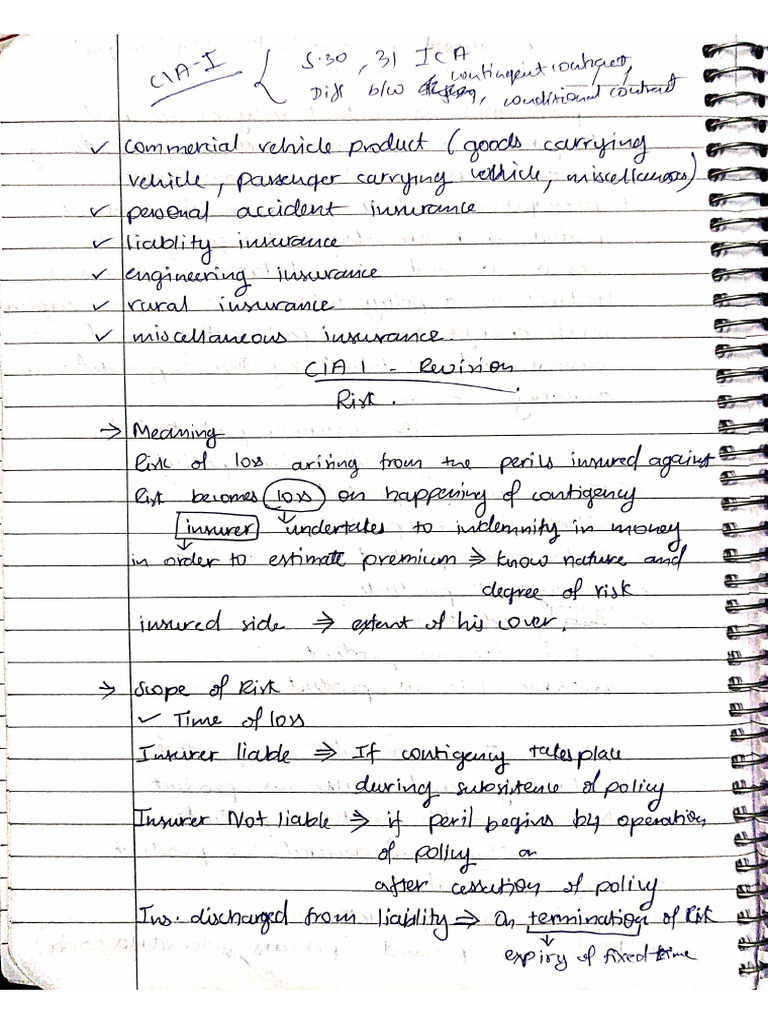 CIA-I { S.30, 31 ICA
Diff b/w contingent contract, conditional contract
✓ commercial vehicle product (goods carrying
vehicle, passenger carrying vehicle, miscellaneous)
✓ personal accident insurance
✓ liablity insurance
✓ engineering insurance
✓ rural insurance
✓ miscellaneous insurance.
CIA 1 - Revision
Risk.
→ Meaning
Risk of loss arising from the perils insured against
Risk becomes loss on happening of contigency
insurer ↓ undertakes to indemnity in money
in order to estimate premium ⇒ know nature and
degree of risk
insured side ⇒ extent of his cover.
→ Scope of Risk
✓ Time of loss
Insurer liable ⇒ If contigency takes place
during subsistence of policy
Insurer Not liable ⇒ if peril begins by operation
of policy or
after cessation of policy
Ins. discharged from liability ⇒ On termination of Risk
↓
expiry of fixed time